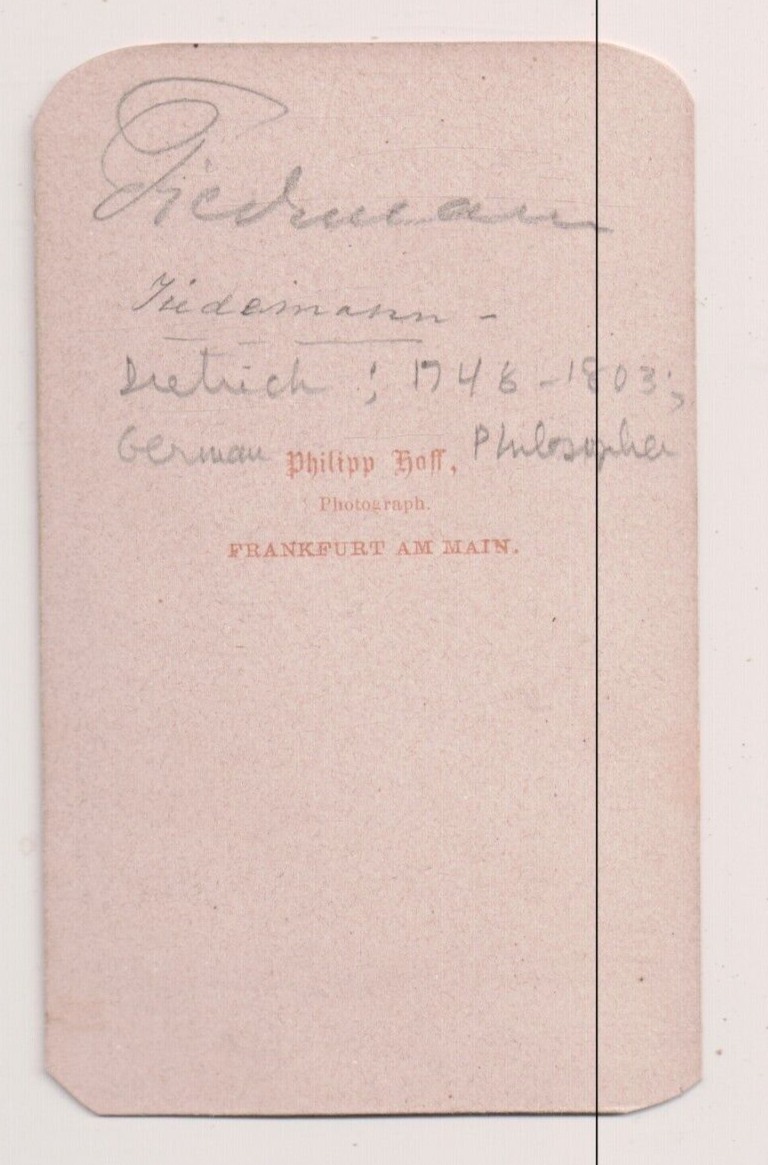 Tiedemann
Tiedemann -
Dietrich ; 1748 - 1803 ;
German Philosopher
Philipp Hoff,
Photograph.
FRANKFURT AM MAIN.